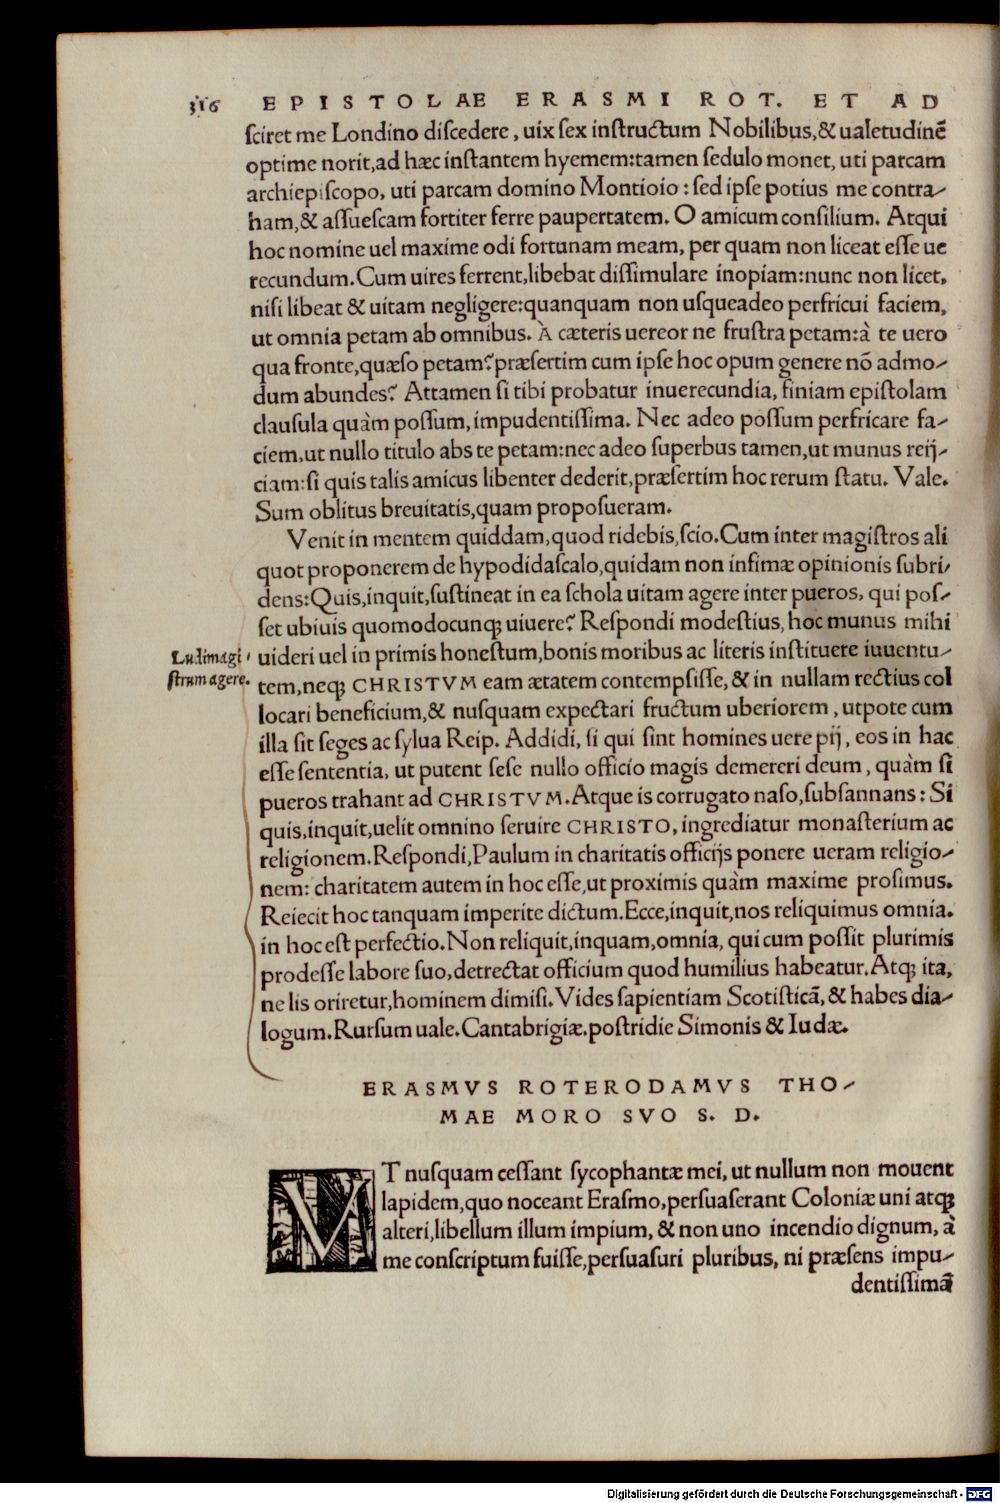 316 EPISTOLAE ERASMI ROT. ET AD
sciret me Londino discedere, uix sex instructum Nobilibus, & ualetudinē
optime norit, ad hæc instantem hyemem: tamen sedulo monet, uti parcam
archiepiscopo, uti parcam domino Montioio: sed ipse potius me contra-
ham, & assuescam fortiter ferre paupertatem. O amicum consilium. Atqui
hoc nomine uel maxime odi fortunam meam, per quam non liceat esse ue
recundum. Cum uires ferrent, libebat dissimulare inopiam: nunc non licet,
nisi libeat & uitam negligere: quanquam non usqueadeo perfricui faciem,
ut omnia petam ab omnibus. À cæteris uereor ne frustra petam: à te uero
qua fronte, quæso petam? præsertim cum ipse hoc opum genere nō admo-
dum abundes? Attamen si tibi probatur inuerecundia, finiam epistolam
clausula quàm possum, impudentissima. Nec adeo possum perfricare fa-
ciem, ut nullo titulo abs te petam: nec adeo superbus tamen, ut munus reij-
ciam: si quis talis amicus libenter dederit, præsertim hoc rerum statu. Vale.
Sum oblitus breuitatis, quam proposueram.
Venit in mentem quiddam, quod ridebis, scio. Cum inter magistros ali
quot proponerem de hypodidascalo, quidam non infimæ opinionis subri-
dens: Quis, inquit, sustineat in ea schola uitam agere inter pueros, qui pos-
set ubiuis quomodocunq; uiuere? Respondi modestius, hoc munus mihi
Ludimagi-
strum agere.
uideri uel in primis honestum, bonis moribus ac literis instituere iuuentu-
tem, neq; CHRISTVM eam ætatem contempsisse, & in nullam rectius col
locari beneficium, & nusquam expectari fructum uberiorem, utpote cum
illa sit seges ac sylua Reip. Addidi, si qui sint homines uere pij, eos in hac
esse sententia, ut putent sese nullo officio magis demereri deum, quàm si
pueros trahant ad CHRISTVM. Atque is corrugato naso, subsannans: Si
quis, inquit, uelit omnino seruire CHRISTO, ingrediatur monasterium ac
religionem. Respondi, Paulum in charitatis officijs ponere ueram religio-
nem: charitatem autem in hoc esse, ut proximis quàm maxime prosimus.
Reiecit hoc tanquam imperite dictum. Ecce, inquit, nos reliquimus omnia.
in hoc est perfectio. Non reliquit, inquam, omnia, qui cum possit plurimis
prodesse labore suo, detrectat officium quod humilius habeatur. Atq; ita,
ne lis oriretur, hominem dimisi. Vides sapientiam Scotisticā, & habes dia-
logum. Rursum uale. Cantabrigiæ. postridie Simonis & Iudæ.
ERASMVS ROTERODAMVS THO-
MAE MORO SVO S. D.
VT nusquam cessant sycophantæ mei, ut nullum non mouent
lapidem, quo noceant Erasmo, persuaserant Coloniæ uni atq;
alteri, libellum illum impium, & non uno incendio dignum, à
me conscriptum fuisse, persuasuri pluribus, ni præsens impu-
dentissimā
Digitalisierung gefördert durch die Deutsche Forschungsgemeinschaft - DFG